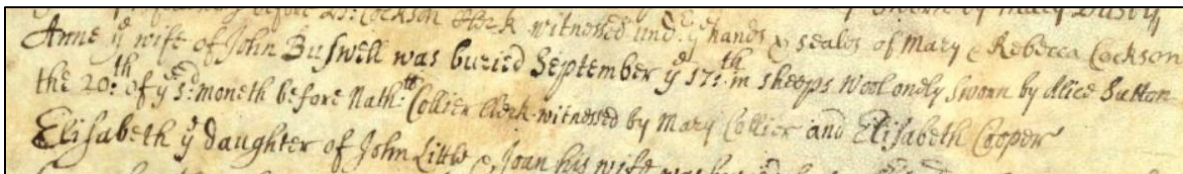 before 23: Cockson Clerk witnessed und.r yͤ hands & seales of Mary & Rebecca Cockson
Anne yͤ wife of John Buswell was buried September yͤ 17:th in sheeps wool onely sworn by Alice Sutton
the 20:th of yͤ sd: moneth before Nath:ll Collier Clerk witnessed by Mary Collier and Elisabeth Cooper
Elisabeth yͤ daughter of John Little & Joan his wife was